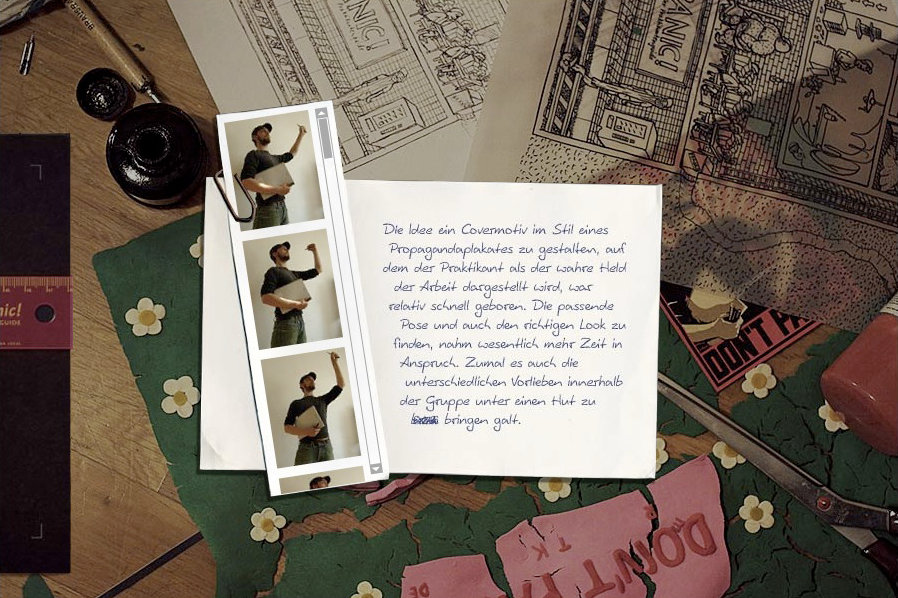 PANIC!
PANIC!
Die Idee ein Covermotiv im Stil eines
Propagandaplakates zu gestalten, auf
dem der Praktikant als der wahre Held
der Arbeit dargestellt wird, war
relativ schnell geboren. Die passende
Pose und auch den richtigen Look zu
finden, nahm wesentlich mehr Zeit in
Anspruch. Zumal es auch die
unterschiedlichen Vorlieben innerhalb
der Gruppe unter einen Hut zu
bringen galt.
nic!
GUIDE
DON'T PA
DON'T PA